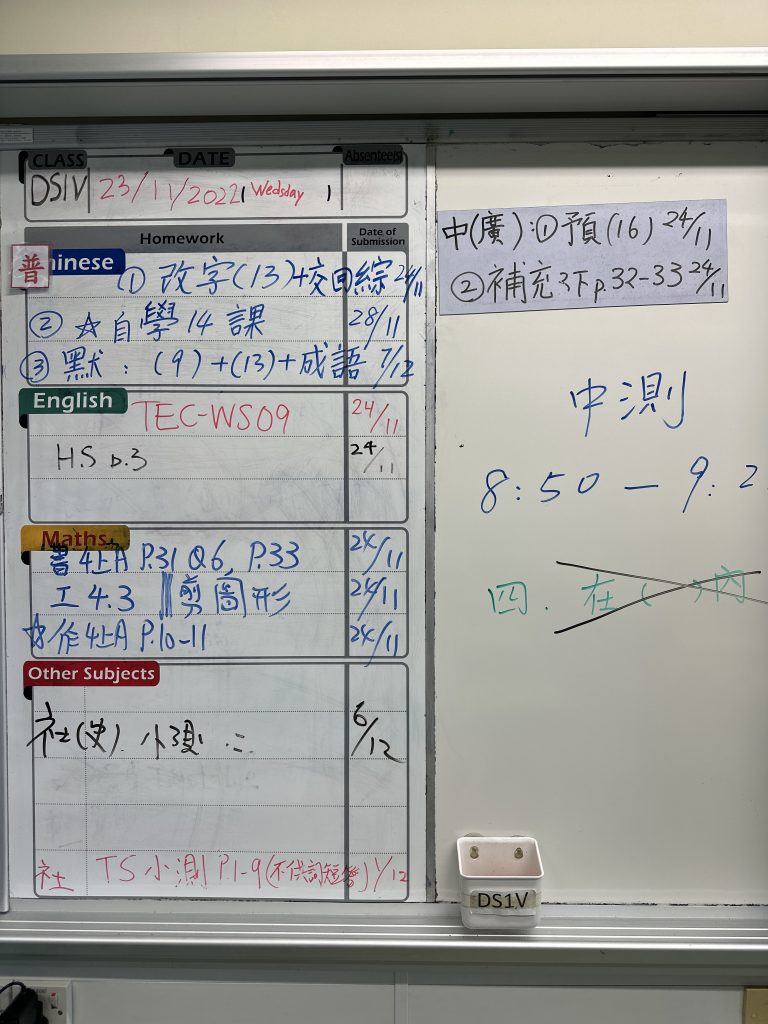 CLASS DATE Absentee(s)
DS1V 23/11/2022 (Wedsday )
Homework Date of Submission
普 hinese
① 改字(13)+交回綜 24/11
② ☆自學14課 28/11
③ 默：(9)+(13)+成語 7/12
English
TEC-WS09 24/11
H.S p.3 24/11
Maths
書4上A P.31 Q6, P.33 24/11
工4.3 剪圖形 24/11
☆作4上A P.10-11 24/11
Other Subjects
社(史) 小測 二 6/12
社 TS小測 P.1-9(不供詞短答) 1/12
中(廣)：①預(16) 24/11
②補充3下p.32-33 24/11
中測
8:50 — 9:2
四. 在( )內
DS1V